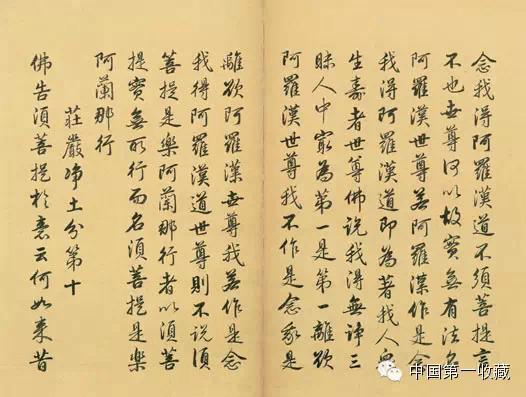 念我得阿羅漢道不須菩提言
不也世尊何以故實無有法名
阿羅漢世尊若阿羅漢作是念
我得阿羅漢道即為著我人眾
生壽者世尊佛說我得無諍三
昧人中最為第一是第一離欲
阿羅漢世尊我不作是念我是
離欲阿羅漢世尊我若作是念
我得阿羅漢道世尊則不說須
菩提是樂阿蘭那行者以須菩
提實無所行而名須菩提是樂
阿蘭那行
莊嚴淨土分第十
佛告須菩提於意云何如來昔
中国第一收藏